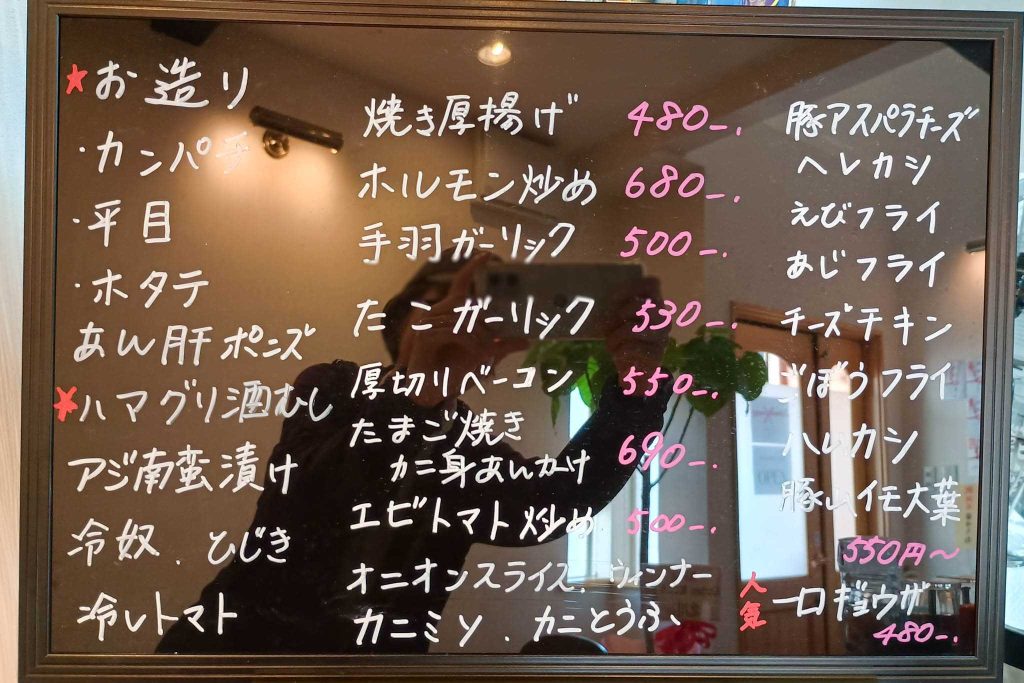 ★お造り
・カンパチ
・平目
・ホタテ
あん肝ポン酢
★ハマグリ酒むし
アジ南蛮漬け
冷奴．ひじき
冷しトマト
焼き厚揚げ 480-.
ホルモン炒め 680-.
手羽ガーリック 500-.
たこガーリック 530-.
厚切りベーコン 550-.
たまご焼き
カニ身あんかけ 690-.
エビトマト炒め 500-.
オニオンスライス．ウィンナー
カニミソ．カニとうふ
豚アスパラチーズ
ヘレカツ
えびフライ
あじフライ
チーズチキン
ごぼうフライ
ハムカツ
豚山イモ大葉
550円～
人気 一口ギョウザ
480-.